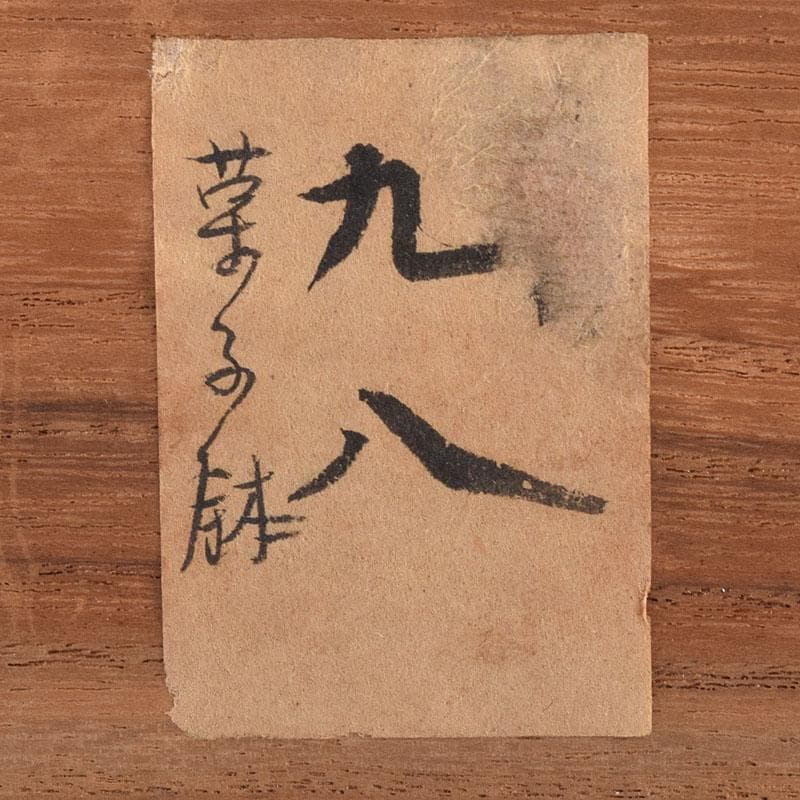 九八
菓子鉢